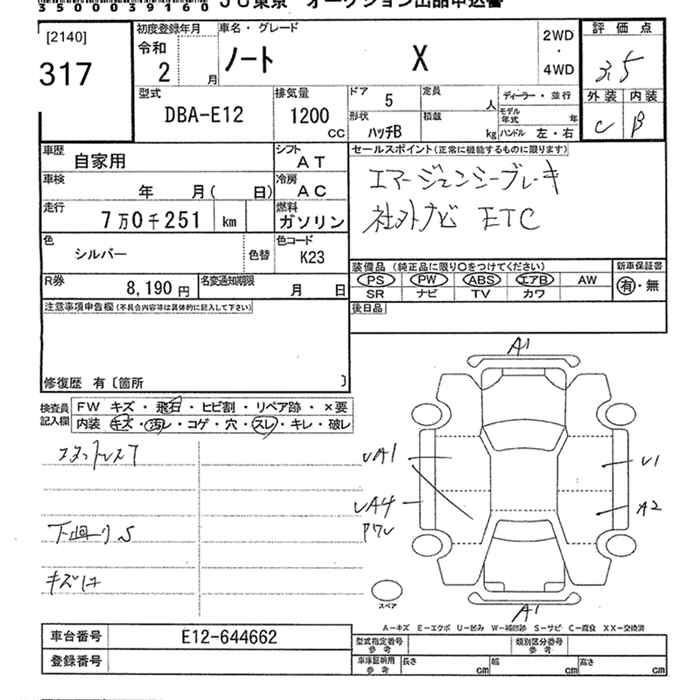 35000039100
JU東京 オークション出品申込書
[2140]
317
初度登録年月
令和
2 月
車名・グレード
ノート X
2WD
・
4WD
評価点
3.5
外装 内装
C B
型式
DBA-E12
排気量
1200
CC
ドア 5
形状 ハッチB
定員 人
積載 kg
ディーラー・並行
モデル年式 年
ハンドル 左・右
車歴 自家用
シフト AT
車検 年 月( 日)
冷房 AC
走行 7万0千251 km
燃料 ガソリン
色 シルバー
色替
色コード K23
R券 8,190円
名変通知期限 月 日
セールスポイント(正常に機能するものに限ります)
エマージェンシーブレーキ
社外ナビ ETC
装備品(純正品に限り○をつけてください)
新車保証書
PS PW ABS エアB AW
SR ナビ TV カワ
有・無
後日品
注意事項申告欄(不具合内容等は具体的に記入して下さい)
修復歴 有〔箇所 〕
検査員記入欄
FW キズ・飛石・ヒビ割・リペア跡・×要
内装 キズ・汚レ・コゲ・穴・スレ・キレ・破レ
下廻りS
キズ
A1
UA1
UA4
U1
A2
A1
スペア
A-キズ E-エクボ U-凹み W-補修跡 S-サビ C-腐食 XX-交換済
車台番号 E12-644662
登録番号
型式指定番号 参考
類別区分番号 参考
車庫証明用 参考
長さ cm
幅 cm
高さ cm